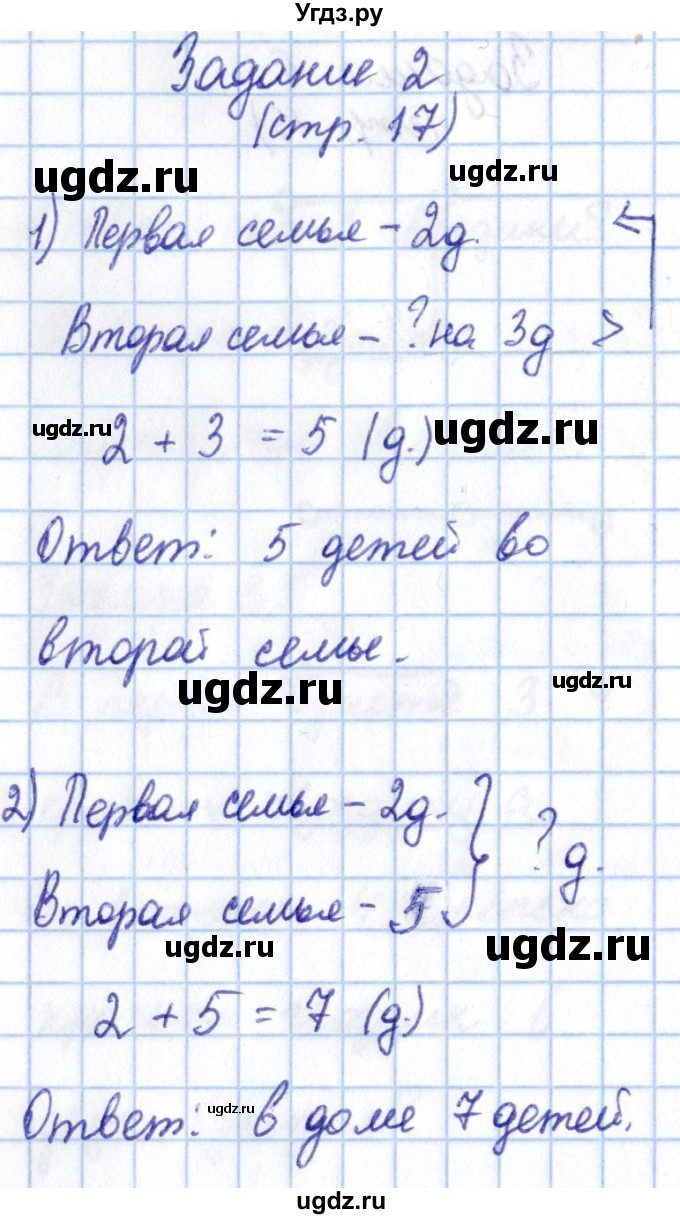 Угдз.ру
Задание 2
(стр. 17)
ugdz.ru ugdz.ru
1) Первая семья – 2д.
Вторая семья – ? на 3д >
ugdz.ru 2 + 3 = 5 (д.) ugdz.ru
Ответ: 5 детей во
второй семье.
ugdz.ru ugdz.ru
2) Первая семья – 2д. } ? д.
Вторая семья – 5
ugdz.ru ugdz.ru
2 + 5 = 7 (д.)
Ответ: ugdz.ru в доме 7 детей.
ugdz.ru